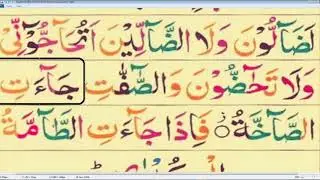 لَضَآلُّوْنَ وَلَا الضَّآلِّيْنَ اَتُحَآجُّوْنِّيْ
وَلَا تَحٰٓضُّوْنَ وَالصّٰٓفّٰتِ جَآءَتِ
الصَّآخَّةُ فَاِذَا جَآءَتِ الطَّآمَّةُ